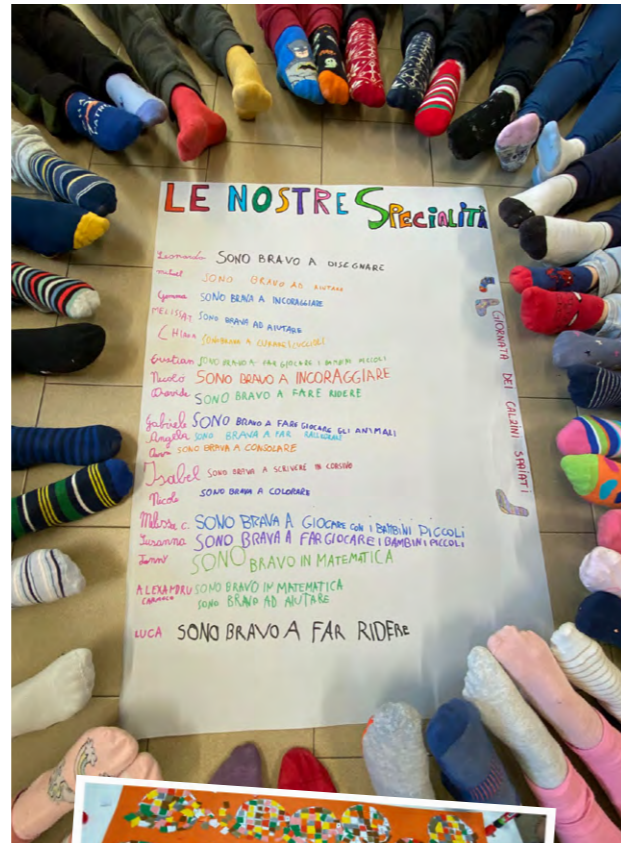 LE NOSTRE SPECIALITÀ
Leonardo SONO BRAVO A DISEGNARE
SONO BRAVO AD AIUTARE
Gemma SONO BRAVA A INCORAGGIARE
MELISSA SONO BRAVA AD AIUTARE
CHIARA SONO BRAVA A
Cristian SONO BRAVO A FAR GIOCARE I BAMBINI PICCOLI
Nicolò SONO BRAVO A INCORAGGIARE
Davide SONO BRAVO A FARE RIDERE
Gabriele SONO BRAVO A FARE GIOCARE GLI ANIMALI
Angela SONO BRAVA A FAR
SONO BRAVA A CONSOLARE
Isabel SONO BRAVA A SCRIVERE IN CORSIVO
Nicole SONO BRAVA A COLORARE
Melissa C. SONO BRAVA A GIOCARE CON I BAMBINI PICCOLI
Susanna SONO BRAVA A FAR GIOCARE I BAMBINI PICCOLI
SONO BRAVO IN MATEMATICA
ALEXANDRU SONO BRAVO IN MATEMATICA
CARMELO SONO BRAVO AD AIUTARE
LUCA SONO BRAVO A FAR RIDERE
GIORNATA DEI CALZINI SPAIATI